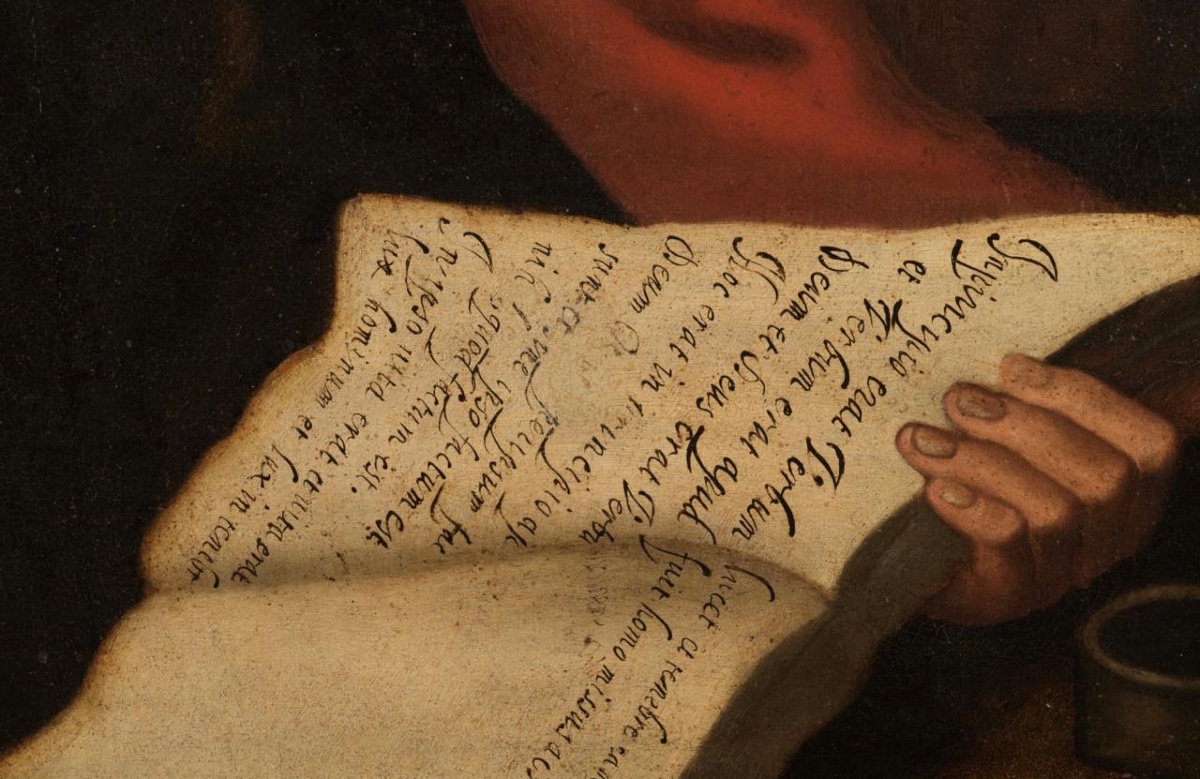 In principio erat Verbum
et Verbum erat apud
Deum et Deus erat Verbu
Hoc erat in principio ap
Deum per ipsum fac
sunt et sine ipso factum est
nihil quod factum est.
In ipso vita erat et vita erat
lux hominum et lux in tenebr
lucet et tenebre ea
Fuit homo missus a